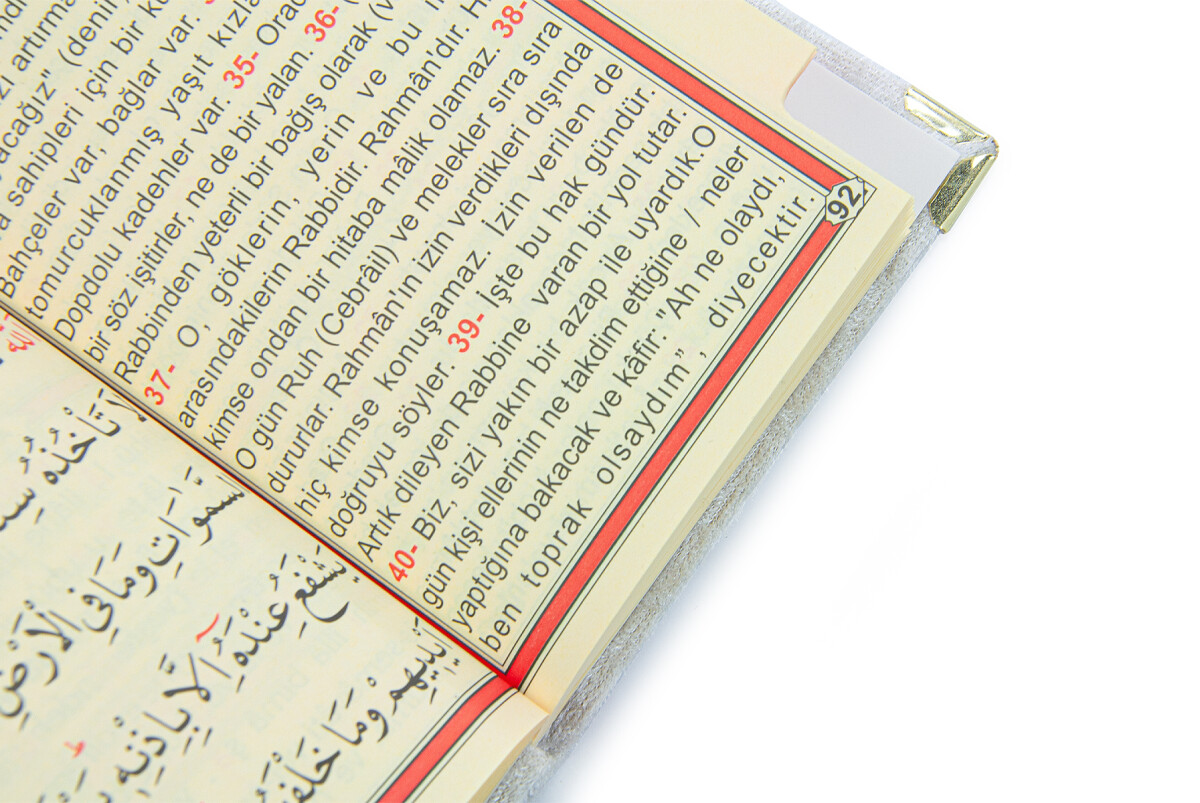 artırma
acağız" (denir
a sahipleri için bir
Bahçeler var, bağlar var.
tomurcuklanmış yaşıt kızla
Dopdolu kadehler var. 35- Orac
bir söz işitirler, ne de bir yalan. 36-
Rabbinden yeterli bir bağış olarak (v
37- O, göklerin, yerin ve bu
arasındakilerin Rabbidir. Rahmân'dır. H
kimse ondan bir hitaba mâlik olamaz. 38-
O gün Ruh (Cebrâil) ve melekler sıra sıra
dururlar. Rahmân'ın izin verdikleri dışında
hiç kimse konuşamaz. İzin verilen de
doğruyu söyler. 39- İşte bu hak gündür.
Artık dileyen Rabbine varan bir yol tutar.
40- Biz, sizi yakın bir azap ile uyardık.O
gün kişi ellerinin ne takdim ettiğine / neler
yaptığına bakacak ve kâfir: "Ah ne olaydı,
ben toprak olsaydım", diyecektir.
92
لَا تَأْخُذُهُ
السَّمٰوَاتِ وَمَا فِي الْاَرْضِ
يَشْفَعُ عِنْدَهُٓ اِلَّا بِاِذْنِهٖ
اَيْدٖيهِمْ وَمَا خَلْفَ